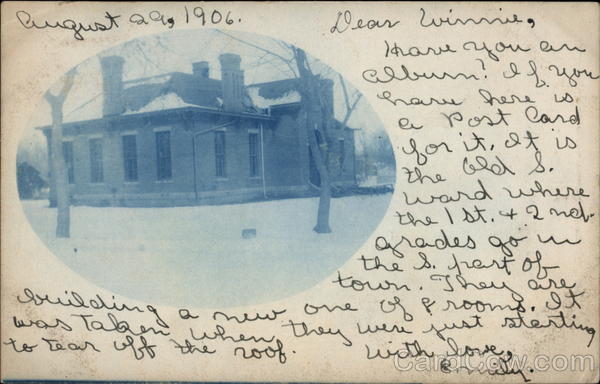 August 29, 1906.
Dear Winnie,
Have you an
Album? If you
have here is
a Post Card
for it. It is
the Old S.
Ward where
the 1st. & 2nd.
grades go in
the S. part of
town. They are
building a new one of 8 rooms. It
was taken when they were just starting
to tear off the roof. With love,
Emily.
CardCow.com